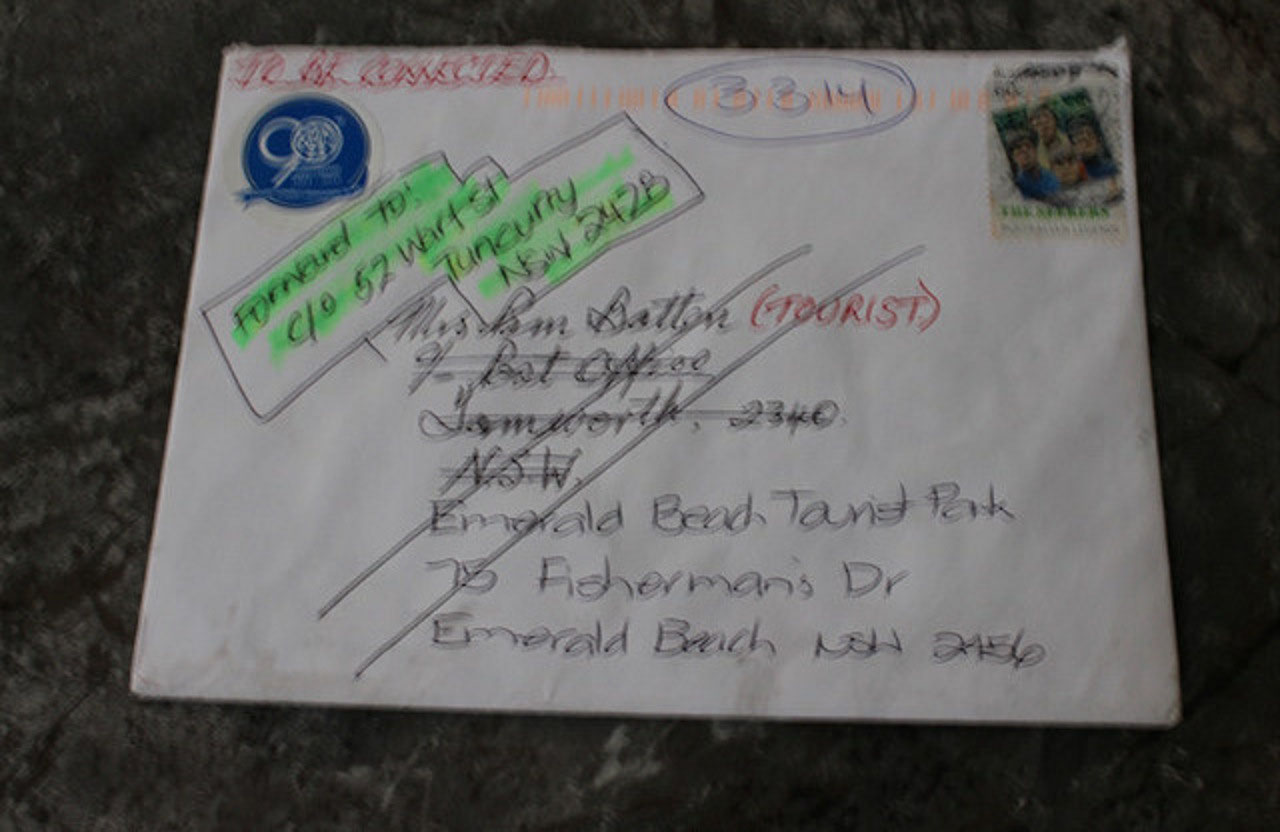 TO BE CONNECTED.
3 3 14
90
THE SEEKERS
AUSTRALIAN LEGENDS
Forward to:
c/o 52 Wart St
Tuncurry
NSW 2428
Mrs Pam Batten (TOURIST)
Post Office
Tamworth, 2340.
N.S.W.
Emerald Beach Tourist Park
75 Fisherman's Dr
Emerald Beach NSW 2456